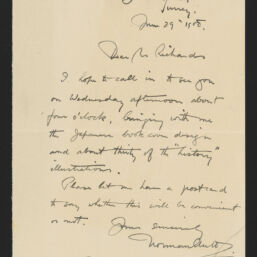 Surrey.
June 29th 1908.
Dear Mr Richards
I hope to call in to see you
on Wednesday afternoon about
four o'clock, bringing with me
the Japanese book cover design
and about thirty of the "history"
illustrations.
Please let me have a postcard
to say whether this will be convenient
or not.
Yours sincerely
Norman Ault.